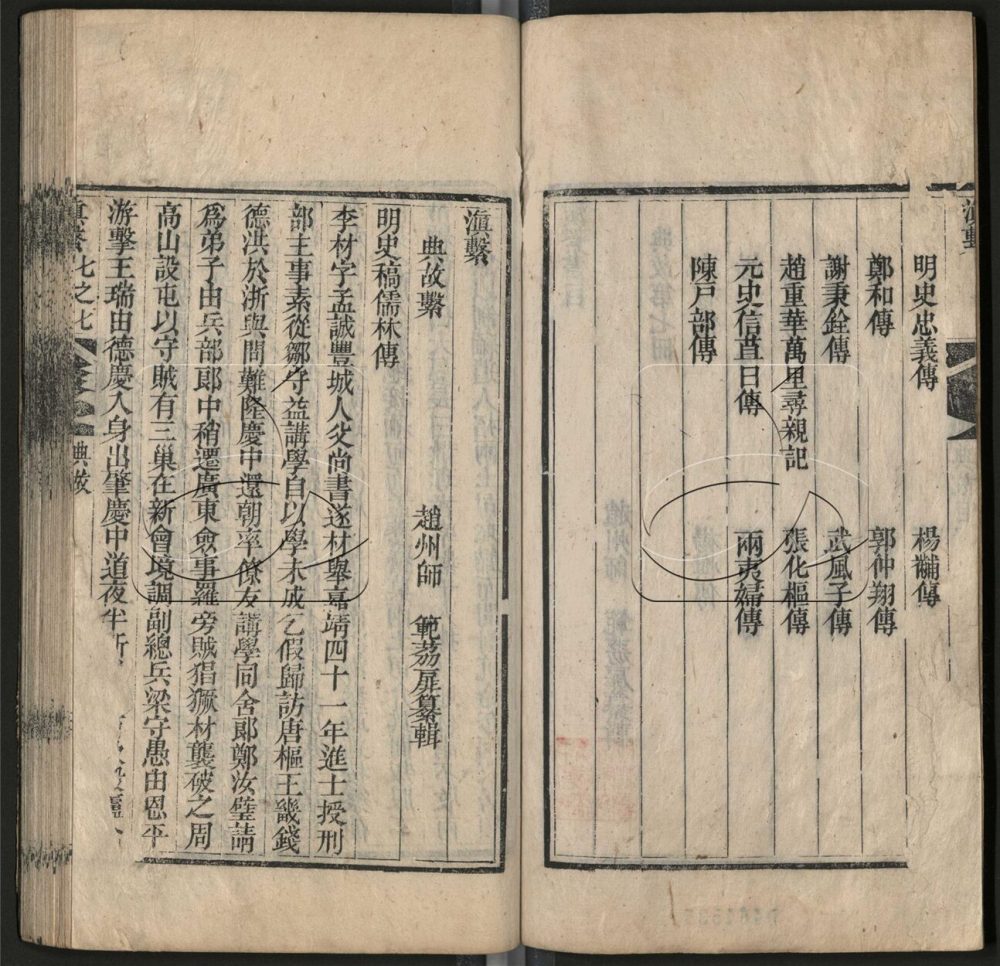 滇繫
明史忠義傳 楊黼傳
鄭和傳 郭仲翔傳
謝秉銓傳 武風子傳
趙重華萬里尋親記 張化樞傳
元史信苴日傳 兩夷婦傳
陳戸部傳
滇繫
典故繫 趙州師 範荔扉纂輯
明史稿儒林傳
李材字孟誠豐城人父尚書遂材舉嘉靖四十一年進士授刑
部主事素從鄒守益講學自以學未成乞假歸訪唐樞王畿錢
德洪於浙與問難隆慶中還朝率僚友講學同舍郎鄭汝璧請
爲弟子由兵部郎中稍遷廣東僉事羅旁賊猖獗材襲破之周
高山設屯以守賊有三巢在新會境調副總兵梁守愚由恩平
游擊王瑞由德慶入身出肇慶中道夜半斬
滇繫 七之七 典故